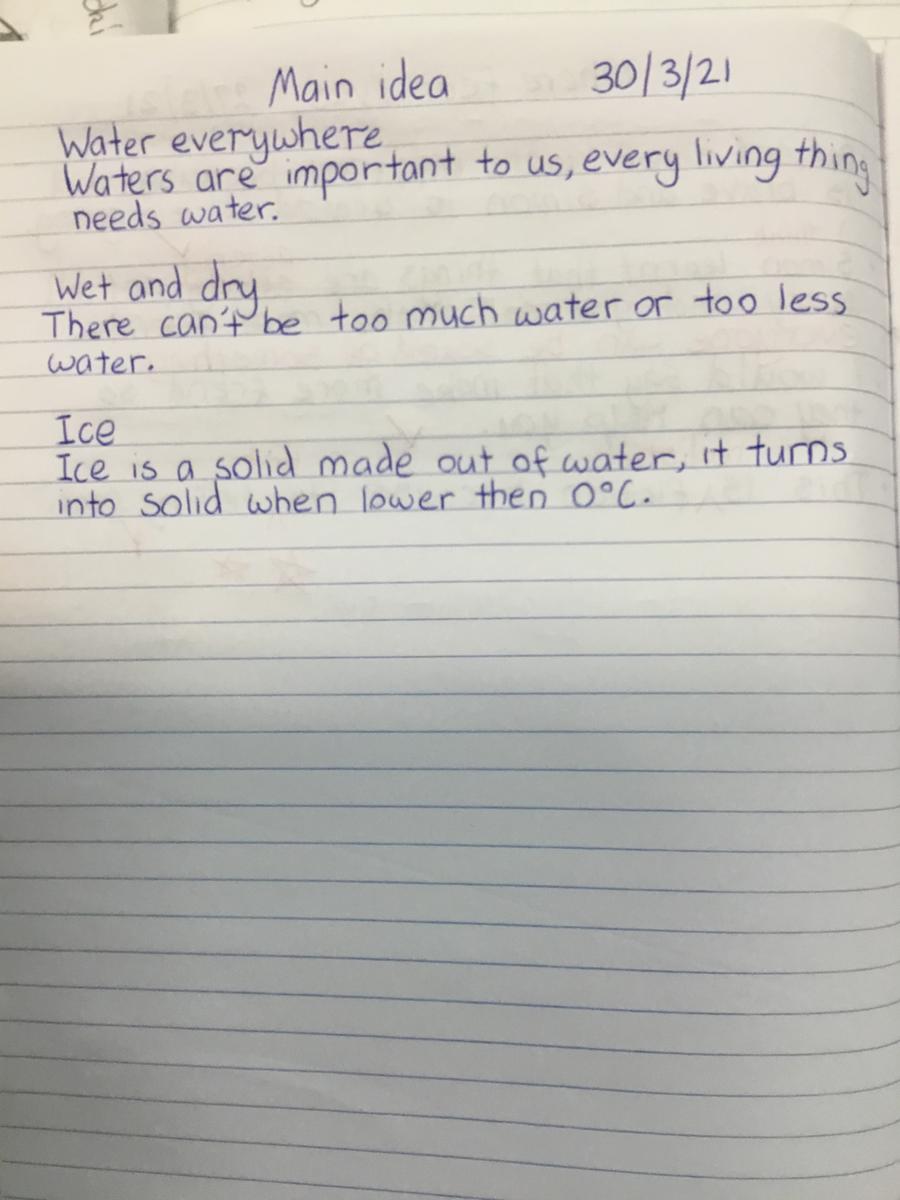 Main idea 30/3/21
Water everywhere
Waters are important to us, every living thing
needs water.
Wet and dry
There can't be too much water or too less
water.
Ice
Ice is a solid made out of water, it turns
into solid when lower then 0°C.